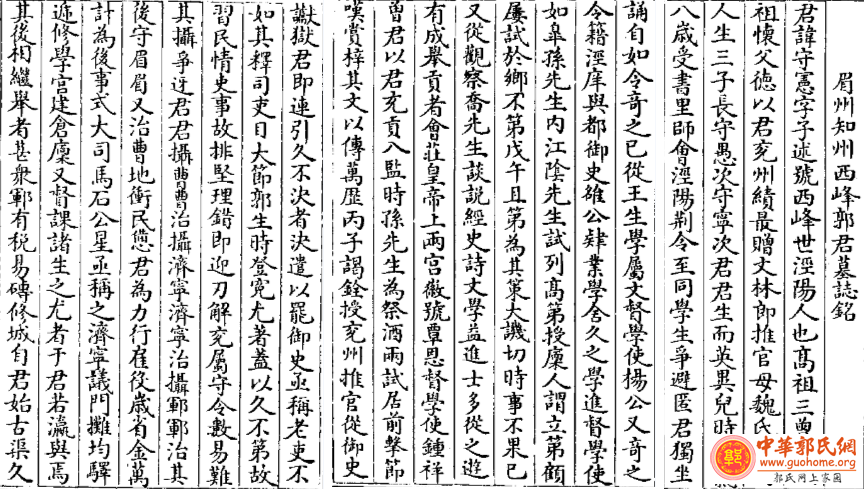 眉州知州西峰郭君墓誌銘
君諱守憲字子述號西峰世涇陽人也髙祖三曾
祖懷父徳以君兖州績最贈文林郎推官母魏氏
人生三子長守愚次守寧次君君生而英異兒時
八歳受書里師會涇陽荆令至同學生爭避匿君獨坐
誦自如令竒之已從王生學屬文督學使楊公又竒之
令籍涇庠與都御史雒公肄業學舍久之學進督學使
如臯孫先生内江陰先生試列髙第授廩人謂立第顧
屢試於鄉不第戊午且第為其策大譏切時事不果已
又從觀察喬先生談説經史詩文學益進士多從之逰
有成舉貢者會莊皇帝上兩宫徽號覃恩督學使鍾祥
曾君以君充貢入監時孫先生為祭酒兩試居前擊節
嘆賞梓其文以傳萬厯丙子謁銓授兖州推官從御史
讞獄君即連引久不決者決遣以罷御史亟稱老吏不
如其釋司吏日大節郭生時登寃尤著葢以久不第故
習民情史事故排堅理錯即迎刃解兖屬守令數易難
其攝爭迓君君攝曹曹治攝濟寧濟寧治攝鄆鄆治其
後守眉眉又治曹地衝民憊君為力行雇役歳省金萬
計為後事式大司馬石公星亟稱之濟寧議門攤均驛
遞修學官建倉廩又督課諸生之尤者于君若瀛與焉
其後相繼舉者甚衆鄆有税易磚修城自君始古渠久
中華郭氏網
www.guohome.org
郭氏网上家園